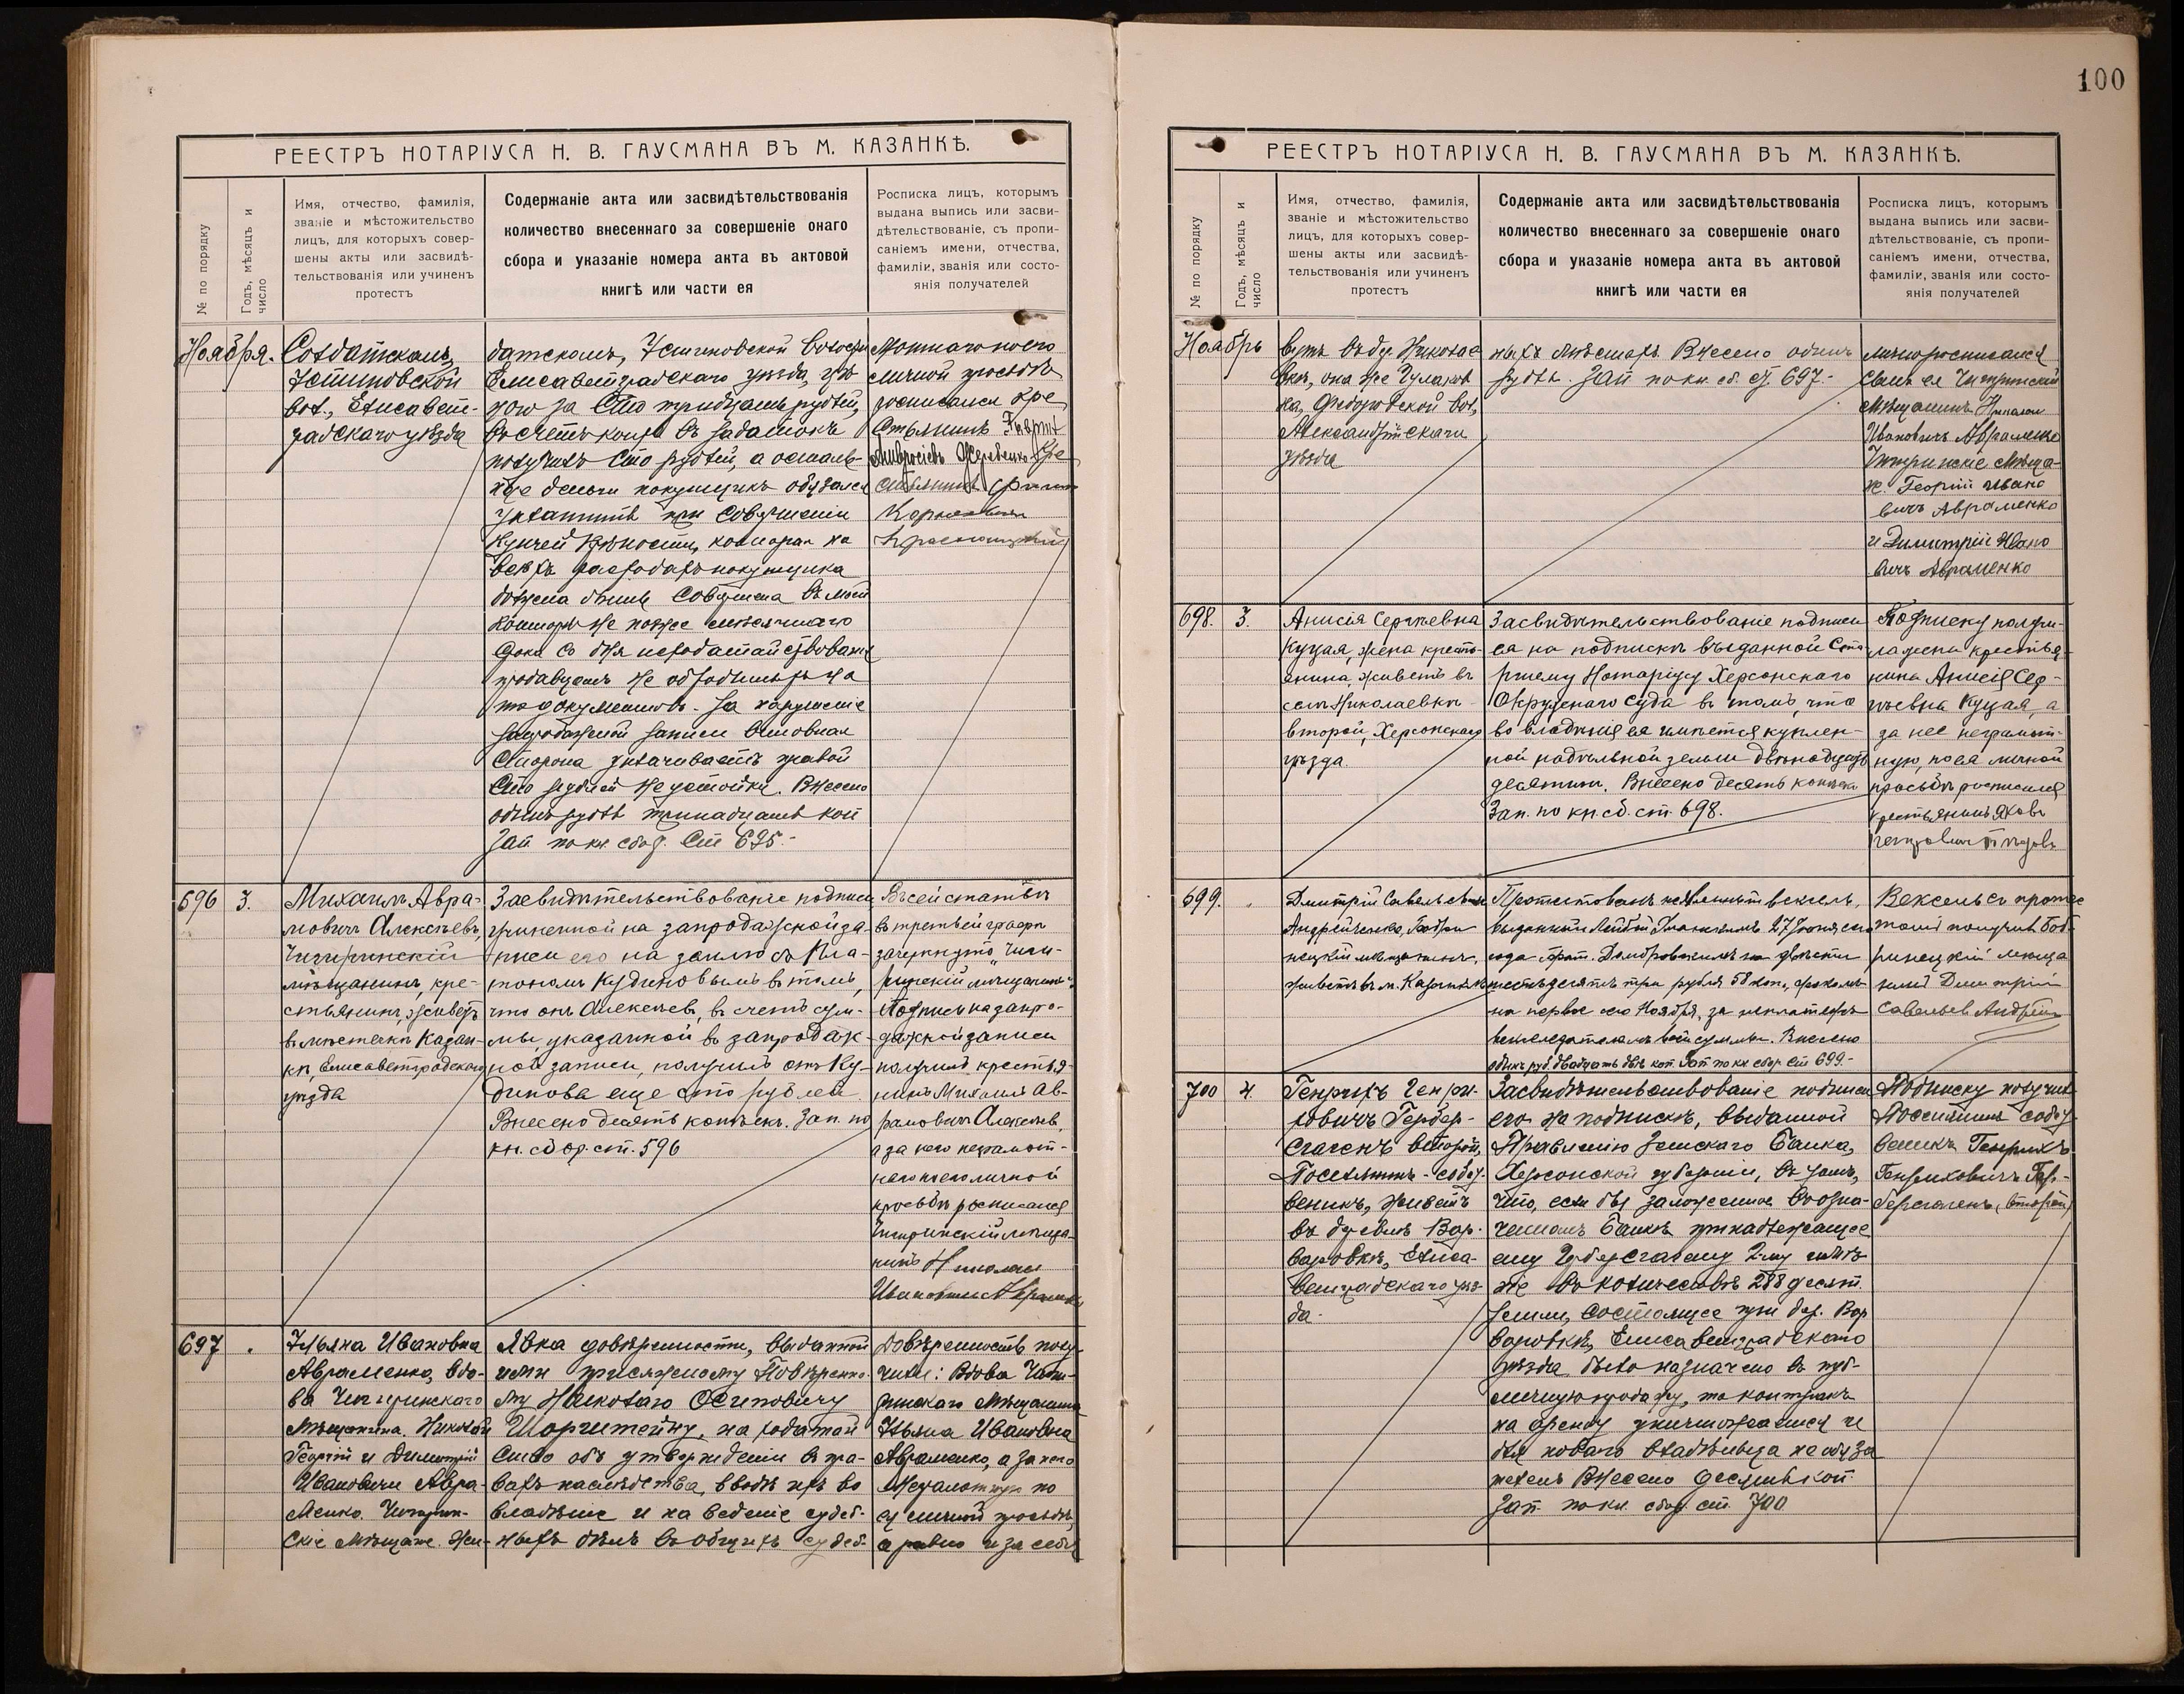 РЕЕСТРЪ НОТАРІУСА Н. В. ГАУСМАНА ВЪ М. КАЗАНКѢ.
№ по порядку
Годъ, мѣсяцъ и
число
Имя, отчество, фамилія,
званіе и мѣстожительство
лицъ, для которыхъ совер-
шены акты или засвидѣ-
тельствованія или учиненъ
протестъ
Содержаніе акта или засвидѣтельствованія
количество внесеннаго за совершеніе онаго
сбора и указаніе номера акта въ актовой
книгѣ или части ея
Росписка лицъ, которымъ
выдана выпись или засви-
дѣтельствованіе, съ пропи-
саніемъ имени, отчества,
фамиліи, званія или состо-
янія получателей
Ноября.
вол., Елисавет-
градскаго уѣзда
Елисаветградскаго уѣзда,
за Сто тридцать рублей,
въ счетъ коихъ въ задатокъ
получилъ Сто рублей, а осталь-
ные деньги покупщикъ обязался
уплатить при совершеніи
купчей крѣпости, которая на
должна быть совершена въ моей
Конторѣ не позже
срока со дня
запродажной записи виновная
Сторона уплачиваетъ правой
Сто рублей неустойки. Внесено
одинъ рубль тринадцать коп
Зап по кн. сбор. Ст 695.-
личной просьбѣ
росписался кре
стьянинъ
696 3.
Михаилъ Авра-
мовичъ Алексѣевъ,
Чигиринскій
мѣщанинъ, кре-
стьянинъ, живетъ
въ мѣстечкѣ Казан-
кѣ, Елисаветградскаго
уѣзда
Засвидѣтельствованіе подписи
учиненной на запродажной за
писи его на землю съ Пла-
тономъ Кудиновымъ въ томъ,
что онъ Алексѣевъ, въ счетъ сум-
мы, указанной въ запродаж-
ной записи, получилъ отъ Ку-
динова еще сто рублей
Внесено десять копѣекъ. Зап. по
кн. сбор. ст. 596
Въ сей статьѣ
въ третьей графѣ
зачеркнуто „Чиги-
ринскій мѣщанинъ".
Подпись на запро-
дажной записи
получилъ крестья-
нинъ Михаилъ Ав-
рамовичъ Алексѣевъ,
а за него неграмот-
наго по его личной
просьбѣ росписался
Чигиринскій мѣща-
нинъ Николай
Ивановичъ Авраменко
697 .
Ульяна Ивановна
Авраменко, вдо-
ва Чигиринскаго
Мѣщанина. Николай
Георгій и Димитрій
Ивановичи Авра-
менко. Чигирин-
скіе Мѣщане. Жи-
Явка довѣренности, выданной
ими присяжному Повѣренно-
му Николаю Осиповичу
Шоргитейну, на ходатай
ство объ утвержденіи въ пра-
вахъ наслѣдства, вводѣ ихъ во
владѣніе и на веденіе судеб-
ныхъ дѣлъ въ общихъ судеб-
Довѣренность полу-
чили: Вдова Чиги-
ринскаго Мѣщанина
Ульяна Ивановна
Авраменко, а за нее
Неграмотную по
ея личной просьбѣ,
а равно и за себя
100
РЕЕСТРЪ НОТАРІУСА Н. В. ГАУСМАНА ВЪ М. КАЗАНКѢ.
№ по порядку
Годъ, мѣсяцъ и
число
Имя, отчество, фамилія,
званіе и мѣстожительство
лицъ, для которыхъ совер-
шены акты или засвидѣ-
тельствованія или учиненъ
протестъ
Содержаніе акта или засвидѣтельствованія
количество внесеннаго за совершеніе онаго
сбора и указаніе номера акта въ актовой
книгѣ или части ея
Росписка лицъ, которымъ
выдана выпись или засви-
дѣтельствованіе, съ пропи-
саніемъ имени, отчества,
фамиліи, званія или состо-
янія получателей
Ноябрь
вутъ въ дер. Николае
вкѣ, она же
Ѳедоровской вол,
Александрійскаго
уѣзда
ныхъ мѣстахъ. Внесено одинъ
рубль. Зап по кн. сб. ст. 697.-
лично росписался
Сынъ ея Чигиринскій
Мѣщанинъ Николай
Ивановичъ Авраменко
Чигиринскіе Мѣща-
не. Георгій Ивано
вичъ Авраменко
и Димитрій Ивано
вичъ Авраменко
698. 3.
Анисія Сергѣевна
Куцая, жена кресть-
янина, живетъ въ
селѣ Николаевкѣ
второй, Херсонскаго
уѣзда.
Засвидѣтельствованіе подписи
ея на подпискѣ выданной Ста-
ршему Нотаріусу Херсонскаго
Окружнаго Суда въ томъ, что
во владѣніи ея имѣется куплен-
ной надѣльной земли двѣнадцать
десятинъ. Внесено десять копѣекъ
Зап. по кн. сб. ст. 698.
Подписку получи-
ла жена крестья-
нина Анисія Сер-
гѣевна Куцая, а
за нее неграмот-
ную, по ея личной
просьбѣ росписался
крестьянинъ Яковъ
699. .
Дмитрій Савельевъ
Андрейченко, Бобри
нецкій мѣщанинъ,
живетъ въ м. Казанкѣ
Протестованъ вексель,
выданный 27 Іюня, сего
года на двѣсти
шестьдесятъ три рубля 58 коп., срокомъ
на первое сего Ноября, за неплатежъ
векселедателемъ всей суммы. Внесено
одинъ руб. двадцать двѣ коп. Зап по кн сбор ст 699.-
Вексель съ протес
томъ получилъ Боб-
ринецкій мѣща
нинъ Дмитрій
Савельевъ
700 4.
Генрихъ Генри-
ховичъ Гербер-
сгагенъ второй,
Поселянинъ-собст-
венникъ, живетъ
въ деревнѣ Вар-
варовкѣ, Елиса-
ветградскаго уѣз-
да.
Засвидѣтельствованіе подписи
его на подпискѣ, выданной
Правленію Земскаго Банка,
Херсонской губерніи, въ томъ,
что, если бы заложенное въ озна-
ченномъ Банкѣ принадлежащее
ему Герберсгагену 2-му имѣ-
ніе въ количествѣ 288 десят.
земли, состоящее при дер. Вар
варовкѣ, Елисаветградскаго
уѣзда было назначено въ пуб-
личную продажу, то контрактъ
на аренду уничтожается и
для новаго владѣльца не обяза
теленъ Внесено десять коп.
Зап. по кн. сбор. ст. 700
Подписку получилъ
Поселянинъ собст-
венникъ Генрихъ
Генриховичъ Гер-
берсгагенъ, (второй)